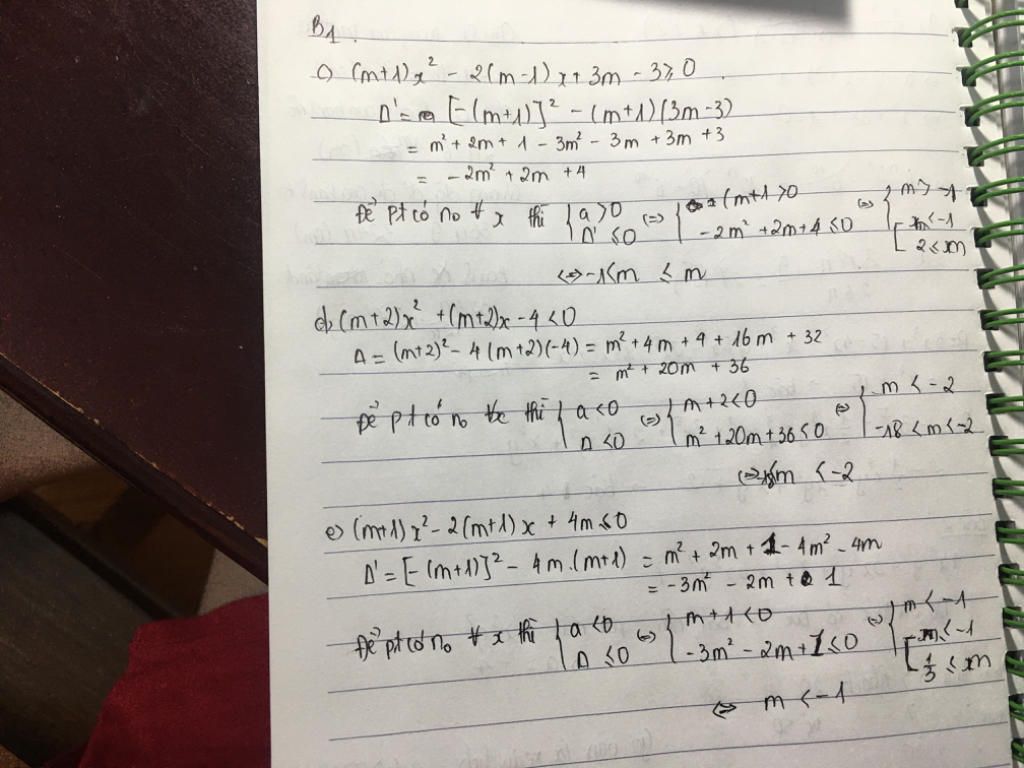 B1.
c) (m+1)x² - 2(m-1)x + 3m - 3 ≥ 0
Δ' = [-(m+1)]² - (m+1)(3m-3)
= m² + 2m + 1 - 3m² - 3m + 3m + 3
= -2m² + 2m + 4
Để pt có no ∀ x thì { a > 0 ; Δ' ≤ 0 (=) { (m+1 > 0 ; -2m² + 2m + 4 ≤ 0 (=) { m > -1 ; [ m < -1 ; 2 ≤ m
<=> -1 < m ≤ m
d, (m+2)x² + (m+2)x - 4 < 0
Δ = (m+2)² - 4(m+2)(-4) = m² + 4m + 4 + 16m + 32
= m² + 20m + 36
Để pt có no ∀x thì { a < 0 ; Δ < 0 (=) { m+2 < 0 ; m² + 20m + 36 ≤ 0 (=) { m < -2 ; -18 < m < -2
m < -2
e) (m+1)x² - 2(m+1)x + 4m ≤ 0
Δ' = [-(m+1)]² - 4m.(m+1) = m² + 2m + 1 - 4m² - 4m
= -3m² - 2m + 1
Để pt có no ∀ x thì { a < 0 ; Δ ≤ 0 (=) { m+1 < 0 ; -3m² - 2m + 1 ≤ 0 (=) { m < -1 ; [ m < -1 ; 1/3 ≤ m
<=> m < -1